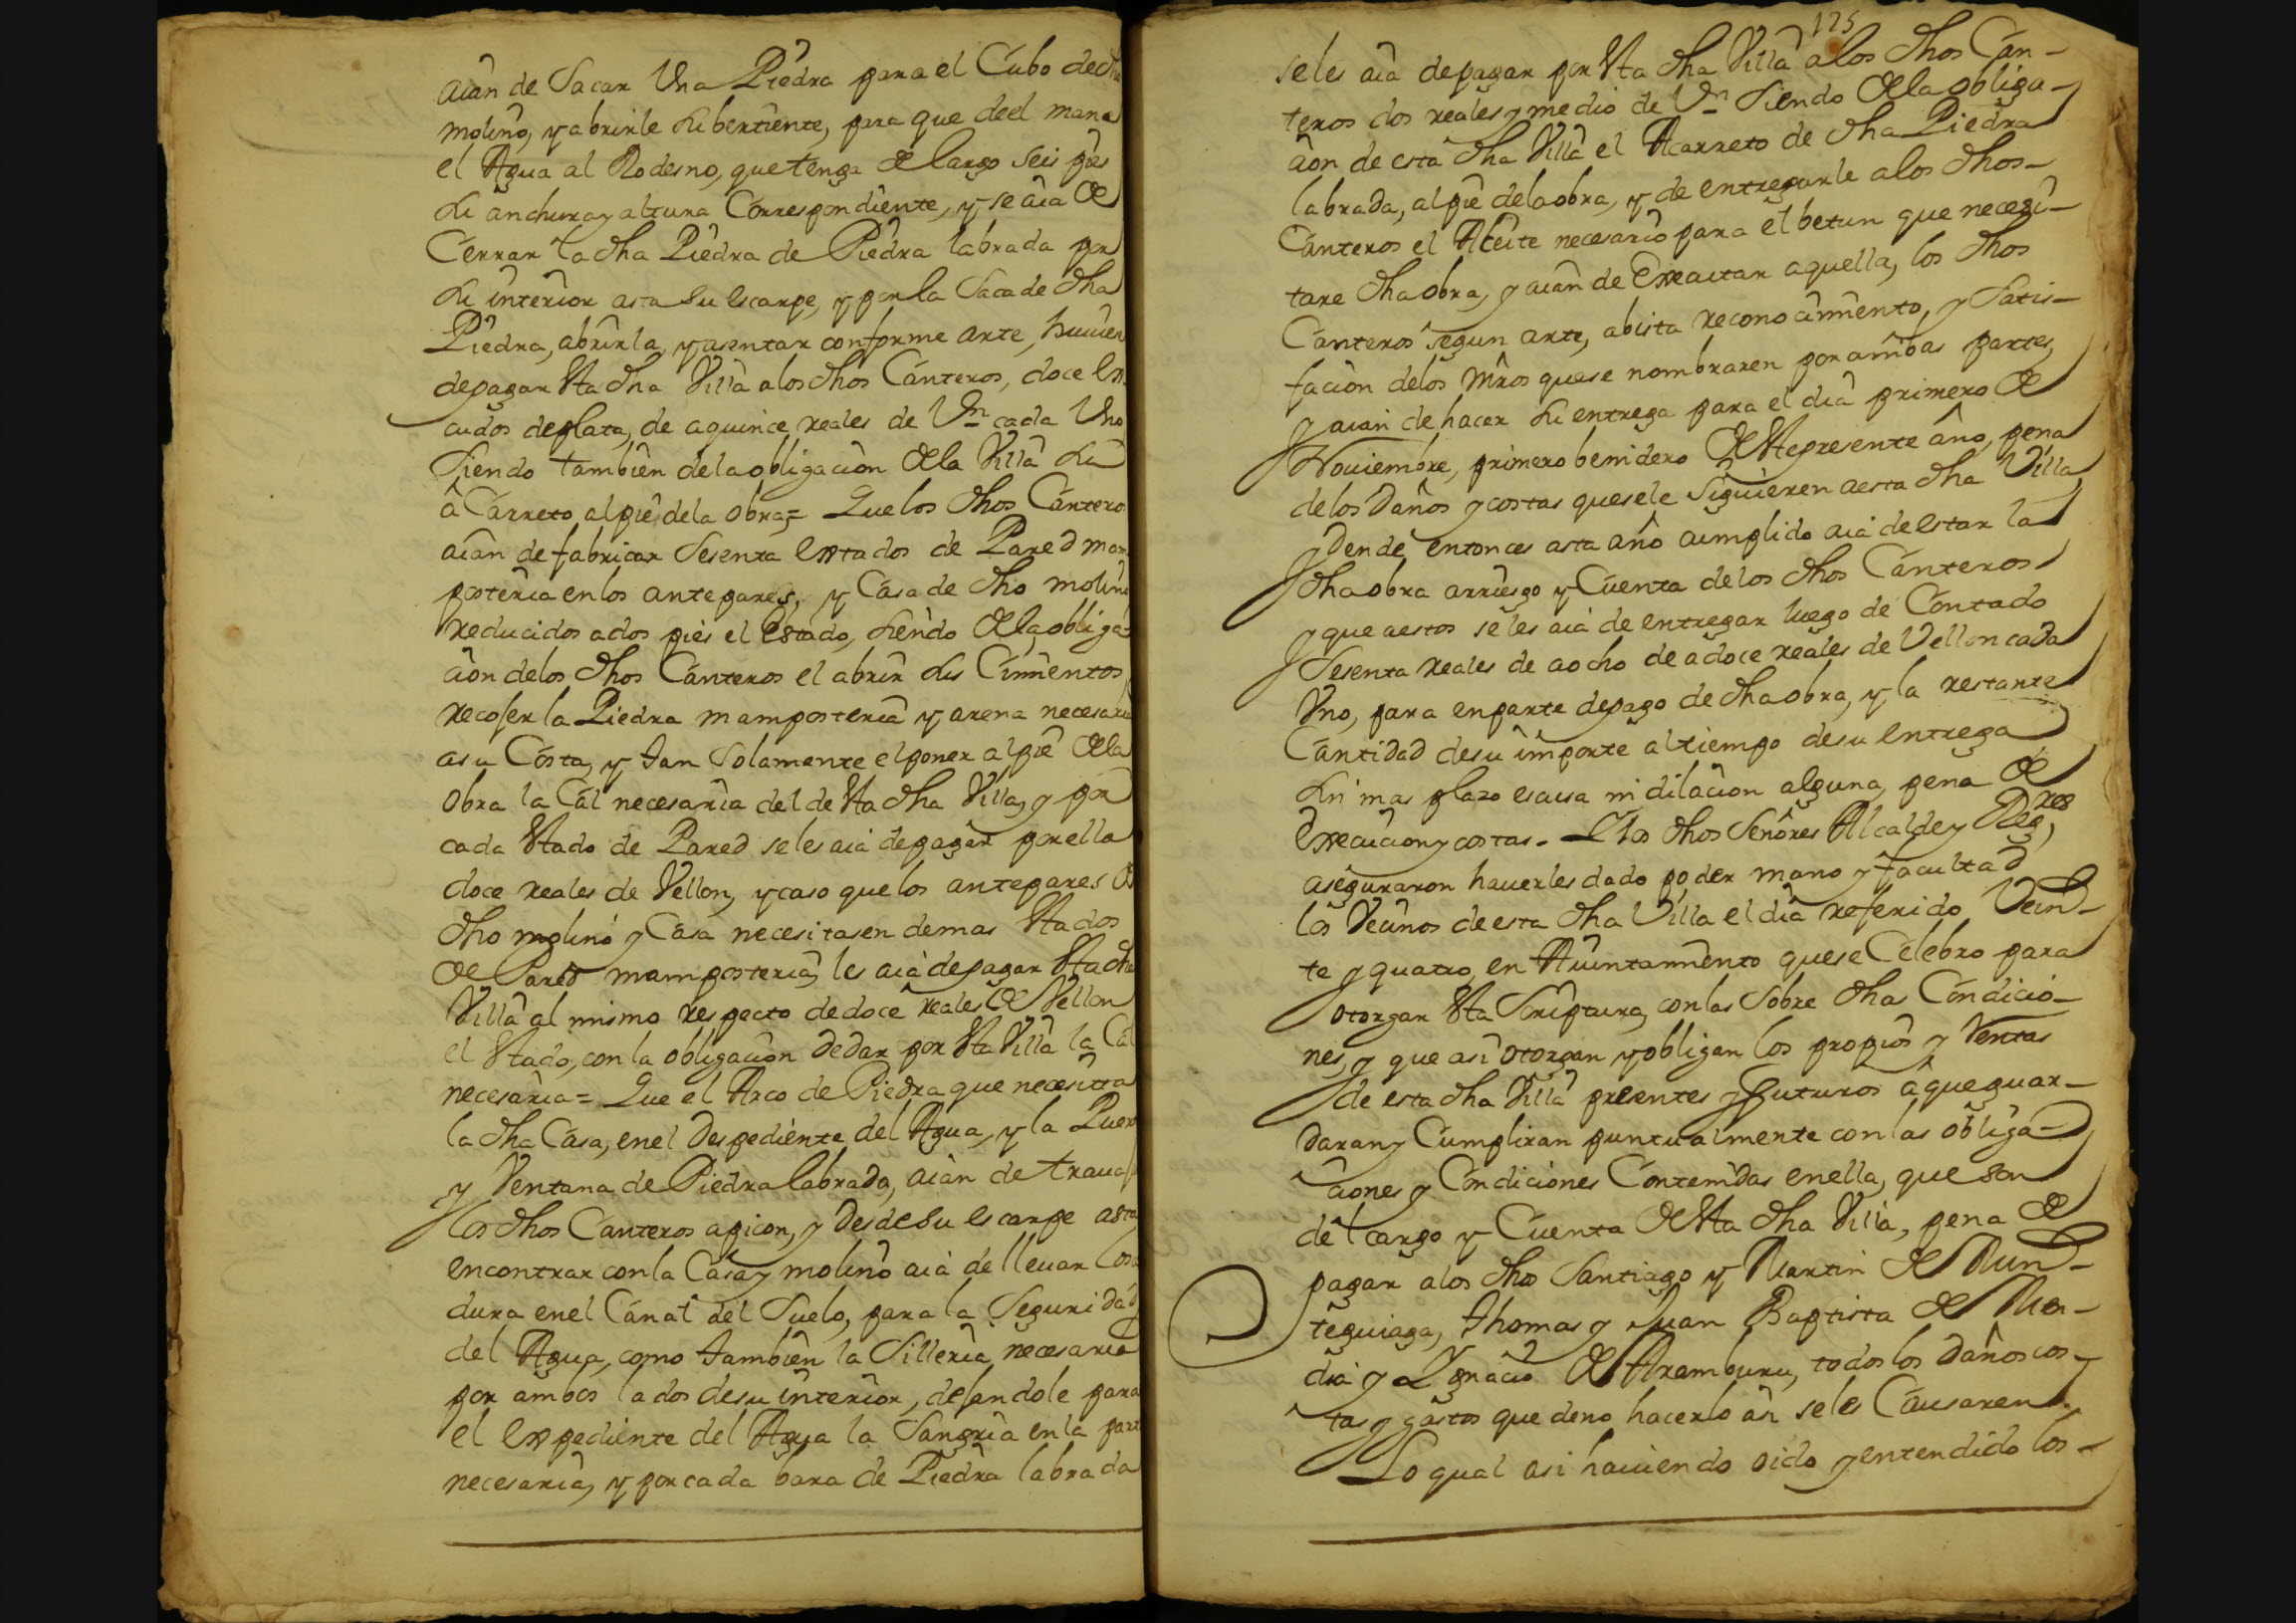 aian de Sacar Vna Piedra para el Cubo de dho
molino, y abrirle su bertiente, para que de el mane
el Agua al Rodesno, que tenga de largo seis pies
su anchura y altura Correspondiente, y se aia de
Cerrar la dha Piedra de Piedra labrada por
su interior asta su escarpe, y por la Saca de dha
Piedra, abrirla, y asentar conforme arte, huuien
de pagar Esta dha Villa a los dhos Canteros, doce Es
cudos de plata, de a quince reales de Vn cada Vno
Siendo tambien de la obligacion de la Villa su
a Carreto al pie de la obra = Que los dhos Cantero
aian de fabricar Sesenta Estados de Pared mam
posteria en los antepares, y Casa de dho molino
reducidos a dos pies el Estado, siendo de la obliga
cion de los dhos Canteros el abrir sus Cimientos
recojer la Piedra mamposteria y arena necesaria
a su Costa, y tan Solamente el poner al pie de la
obra la Cal necesaria del de Esta dha Villa, y por
cada Estado de Pared se les aia de pagar por ella
doce reales de Vellon, y caso que los antepares de
dho molino y Casa necesitasen de mas Estados
de Pared mamposteria, les aia de pagar Esta dha
Villa al mismo respecto de doce reales de Vellon
el Estado, con la obligacion de dar por Esta Villa la Cal
necesaria = Que el Arco de Piedra que necesita
la dha Casa, en el Despediente del Agua, y la Puert
y Ventana de Piedra labrada, aian de trauaj
los dhos Canteros a picon, y desde su escarpe asta
encontrar con la Casa y molino aia de lleuar Losa
dura en el Canal del Suelo, para la Seguridad
del Agua, como tambien la Silleria necesaria
por ambos lados de su interior, dejandole para
el Expediente del Agua la Sangria en la part
necesaria, y por cada bara de Piedra labrada
125
se les aia de pagar por Esta dha Villa a los dhos Can-
teros dos reales y medio de Vn Siendo de la obliga-
cion de esta dha Villa el Acarreto de dha Piedra
labrada, al pie de la obra, y de entregarle a los dhos-
Canteros el Aceite necesario para el betun que necesi-
tare dha obra, y aian de Executar aquella, los dhos
Canteros segun arte, a bista reconocimiento, y Satis-
facion de los Mros que se nombraren por ambas partes,
y aian de hacer su entrega para el dia primero de
Nouiembre, primero benidero de Este presente año, pena
de los Daños y costas que se le Siguieren a esta dha Villa,
y Dende entonces asta año cumplido aia de Estar la
dha obra arriesgo y Cuenta de los dhos Canteros
y que a estos se les aia de entregar luego de Contado
Sesenta reales de a ocho de a doce reales de Vellon cada
Vno, para en parte de pago de dha obra, y la restante
Cantidad de su importe al tiempo de su entrega
Sin mas plazo escusa ni dilacion alguna, pena de
Execucion y costas. Y los dhos Señores Alcalde y Regres
aseguraron hauerles dado poder mano y facultad
los Vecinos de esta dha Villa el dia referido Vein-
te y quatro, en Aiuntamiento que se Celebro para
otorgar Esta Scriptura, con las Sobre dhas Condicio-
nes, y que asi otorgan y obligan los propios y Rentas
de esta dha Villa presentes y futuros a que guar-
daran y Cumpliran puntualmente con las obliga-
ciones y Condiciones Contenidas en ella, que son
del cargo y Cuenta de Esta dha Villa, pena de
pagar a los dhos Santiago y Martin de Mun-
teguiaga, Thomas y Juan Baptista de Men-
dia y Ygnacio de Aramburu, todos los Daños cos-
tas y gastos que de no hacerlo asi se les Causaren.
Lo qual asi hauiendo oido y entendido los-